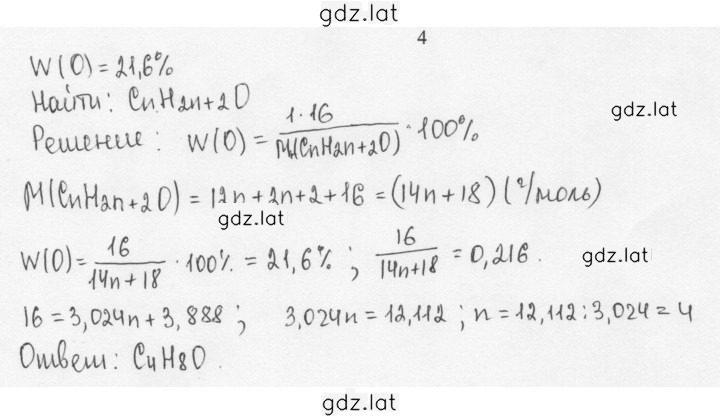 gdz.lat
4
W(O) = 21,6%
Найти: CnH2n+2O
gdz.lat
Решение: W(O) = 1·16 / M(CnH2n+2O) · 100%
M(CnH2n+2O) = 12n + 2n + 2 + 16 = (14n + 18) (г/моль)
gdz.lat
W(O) = 16 / 14n + 18 · 100% = 21,6% ; 16 / 14n + 18 = 0,216 .
gdz.lat
16 = 3,024n + 3,888 ; 3,024n = 12,112 ; n = 12,112 : 3,024 = 4
Ответ: C4H8O .
gdz.lat